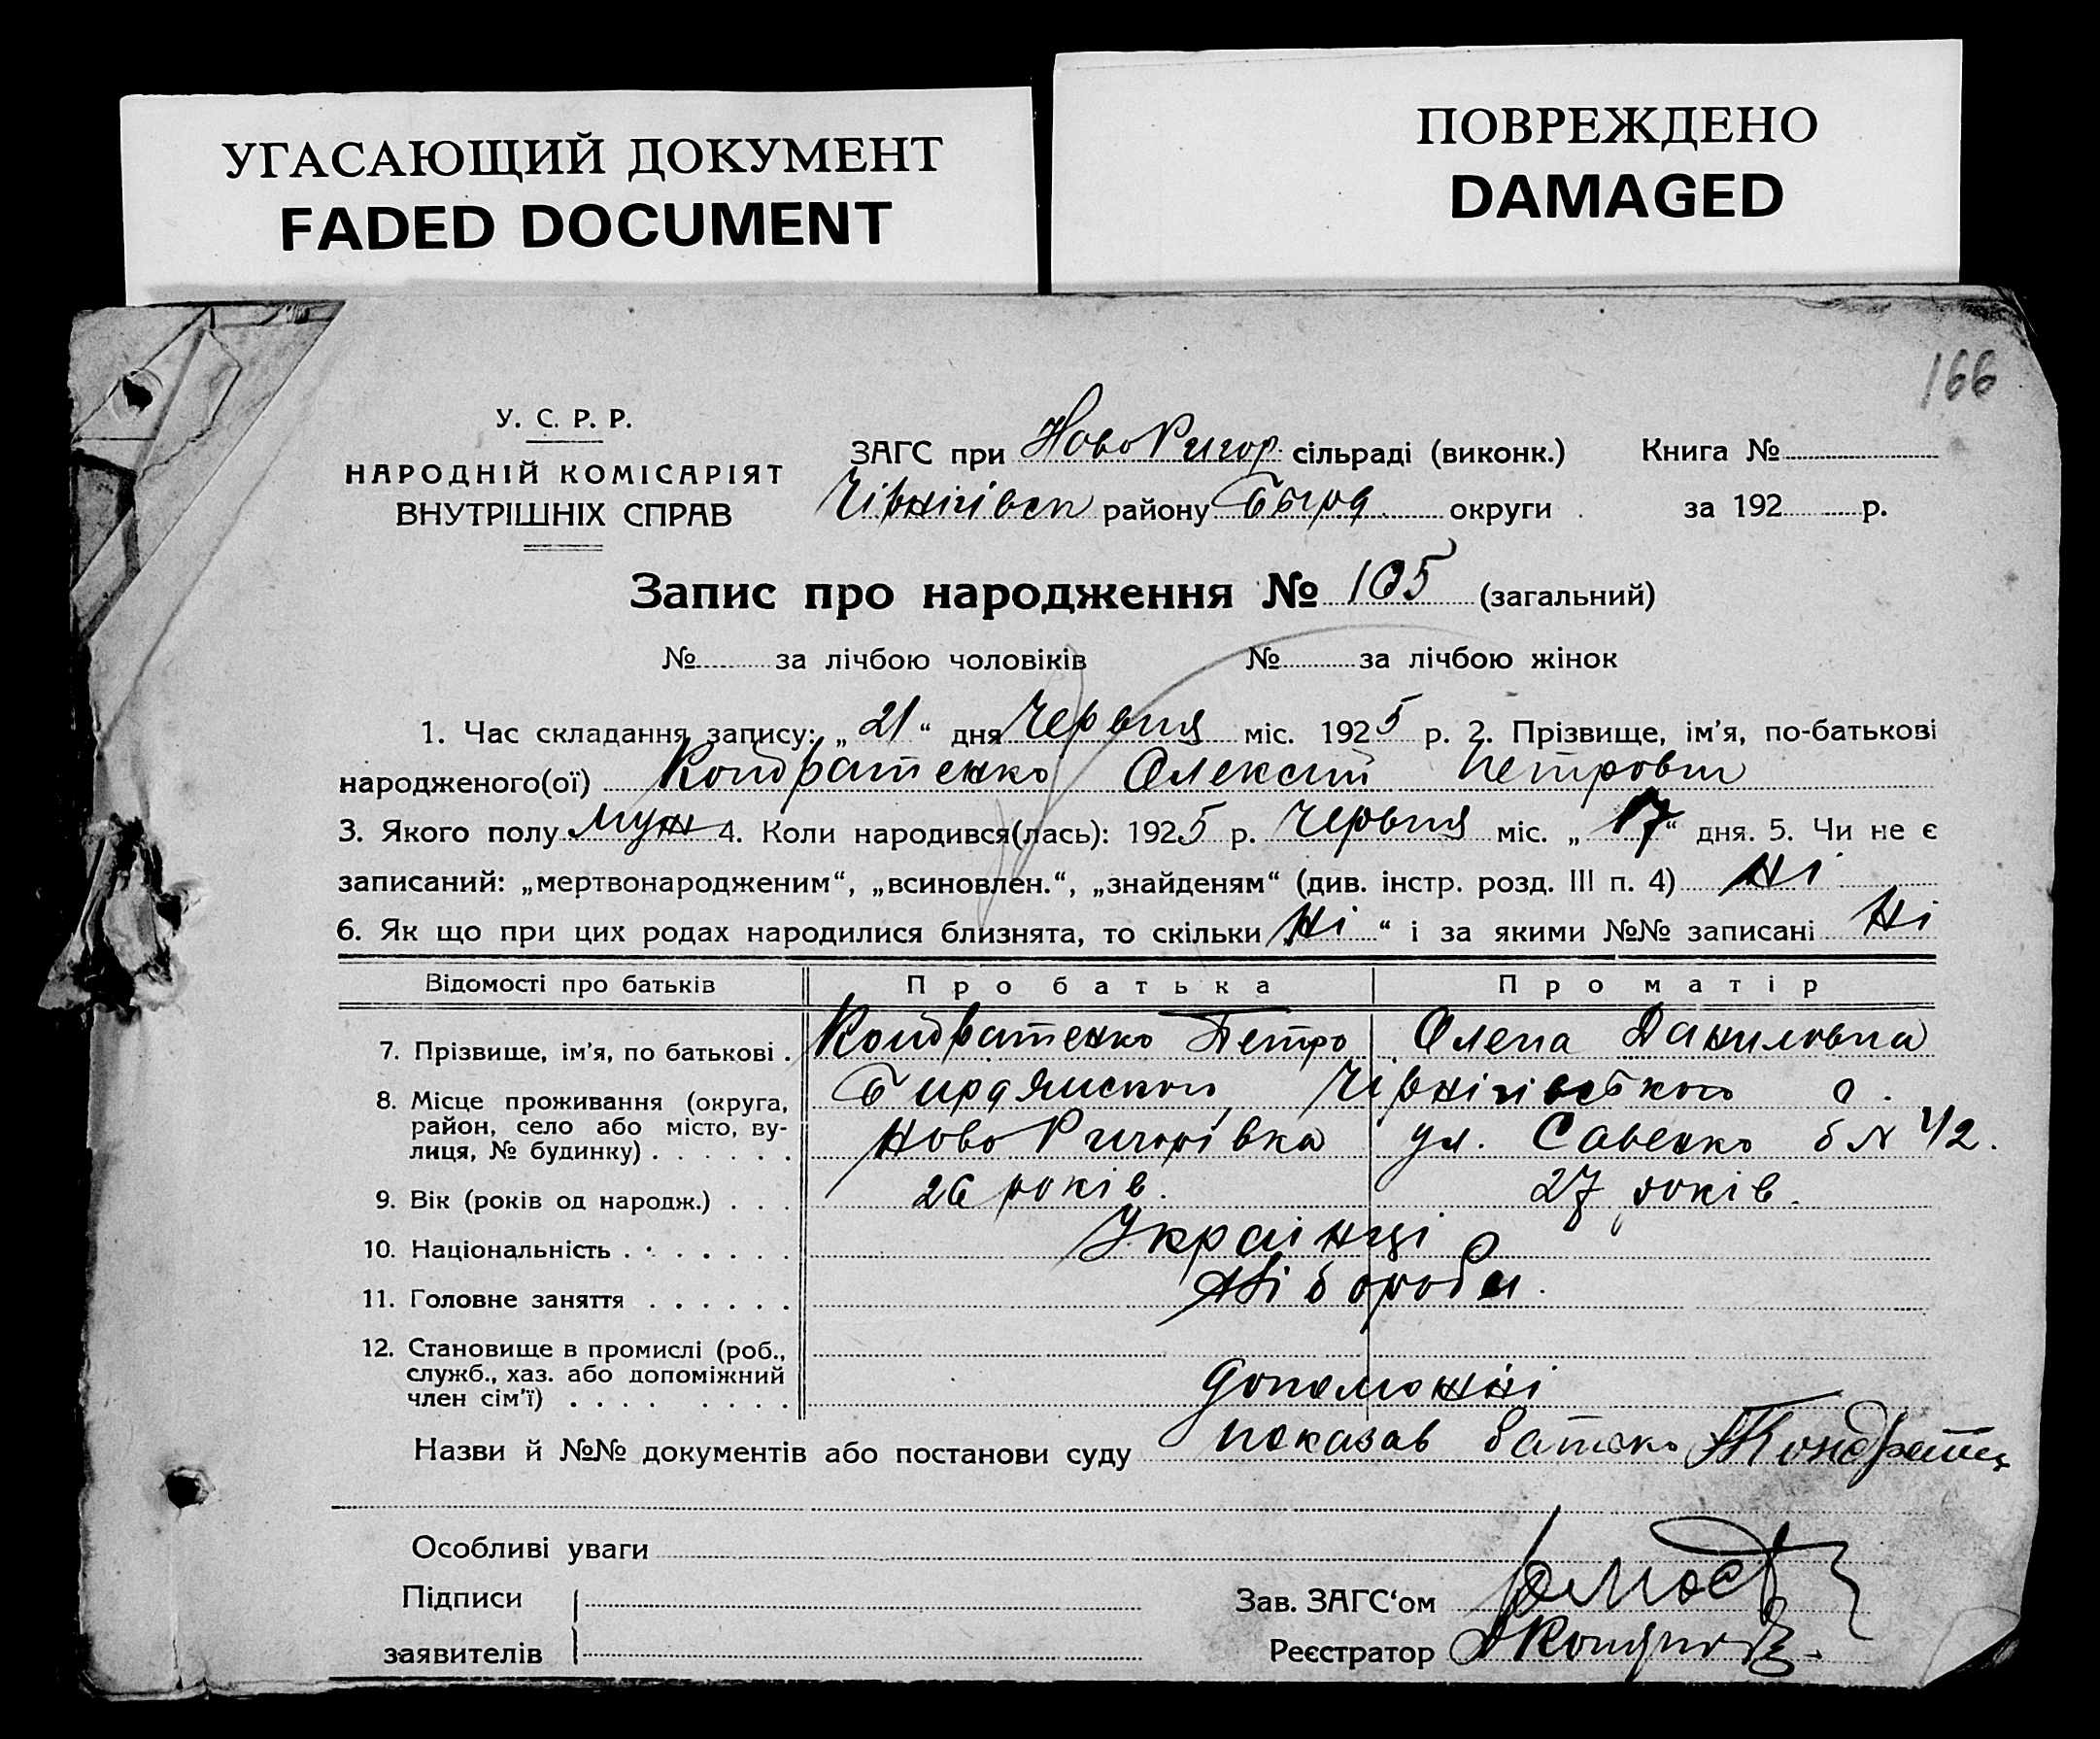 УГАСАЮЩИЙ ДОКУМЕНТ
FADED DOCUMENT
ПОВРЕЖДЕНО
DAMAGED
166
У. С. Р. Р.
НАРОДНІЙ КОМІСАРІЯТ
ВНУТРІШНІХ СПРАВ
ЗАГС при НовоРигор. сільраді (виконк.)
Чірнігівськ району Бърд округи
Книга №
за 192 р.
Запис про народження № 105 (загальний)
№ за лічбою чоловіків № за лічбою жінок
1. Час складання запису: „21“ дня Червня міс. 1925 р. 2. Прізвище, ім'я, по-батькові
народженого(ої) Кондратенко Олексій Петрович
3. Якого полу муж 4. Коли народився(лась): 1925 р. Червня міс. „17“ дня. 5. Чи не є
записаний: „мертвонародженим“, „всиновлен.“, „знайденям“ (див. інстр. розд. III п. 4) Ні
6. Як що при цих родах народилися близнята, то скільки Ні “ і за якими №№ записані Ні
Відомості про батьків Про батька Про матір
7. Прізвище, ім'я, по батькові . Кондратенко Петро Олена Даниловна
8. Місце проживання (округа, район, село або місто, вулиця, № будинку) Бирдянськой, Чірнігівського
НовоРигорівка ул. Савенко б N 42.
9. Вік (років од народж.) . . . 26 років. 27 років.
10. Національність . . . . . . . Українці
11. Головне заняття . . . . . . Хлібороби.
12. Становище в промислі (роб.,
служб., хаз. або допоміжний
член сім'ї) . . . . . . . . допоможні
Назви й №№ документів або постанови суду показав батько
Особливі уваги
Підписи
заявителів
Зав. ЗАГС‘ом
Реєстратор